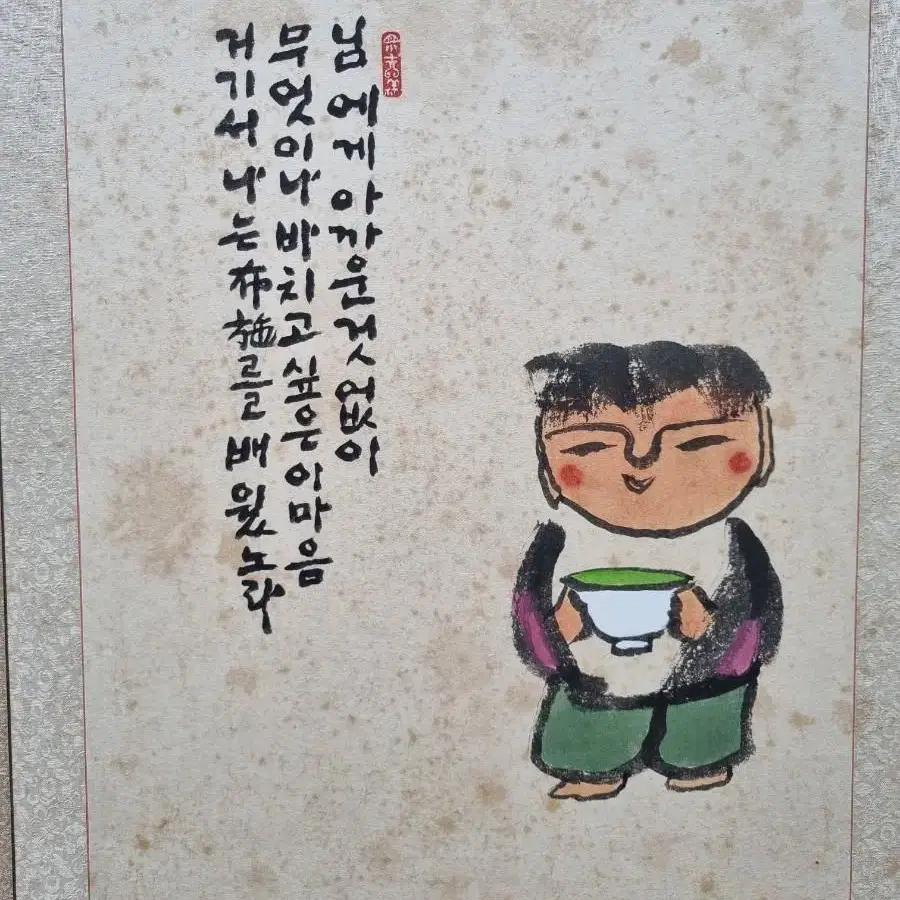 님에게 아까운 것 없이
무엇이나 바치고 싶은 이 마음
거기서 나는 布施를 배웠노라